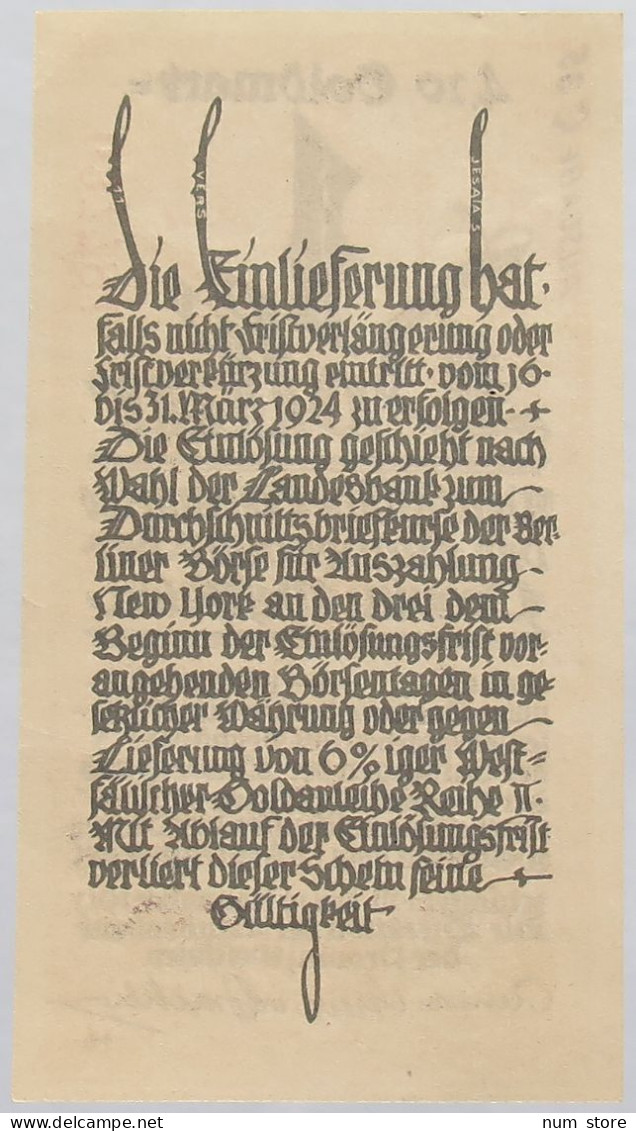 11
VERS
JESAIA 5
Die Einlieferung hat·
falls nicht Fristverlängerung oder
Fristverkürzung eintritt· vom 16·
bis 31. März 1924 zu erfolgen·
Die Einlösung geschieht nach
Wahl der Landesbank zum
Durchschnittsbriefkurse der Ber-
liner Börse für Auszahlung
New York an den drei dem
Beginn der Einlösungsfrist vor-
angehenden Börsentagen in ge-
setzlicher Währung oder gegen
Lieferung von 6%iger West-
fälischer Goldanleihe Reihe II·
Mit Ablauf der Einlösungsfrist
verliert dieser Schein seine
Gültigkeit·
num store